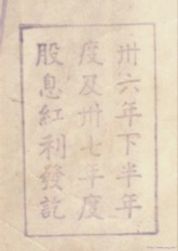 卅六年下半年
度及卅七年度
股息紅利發訖